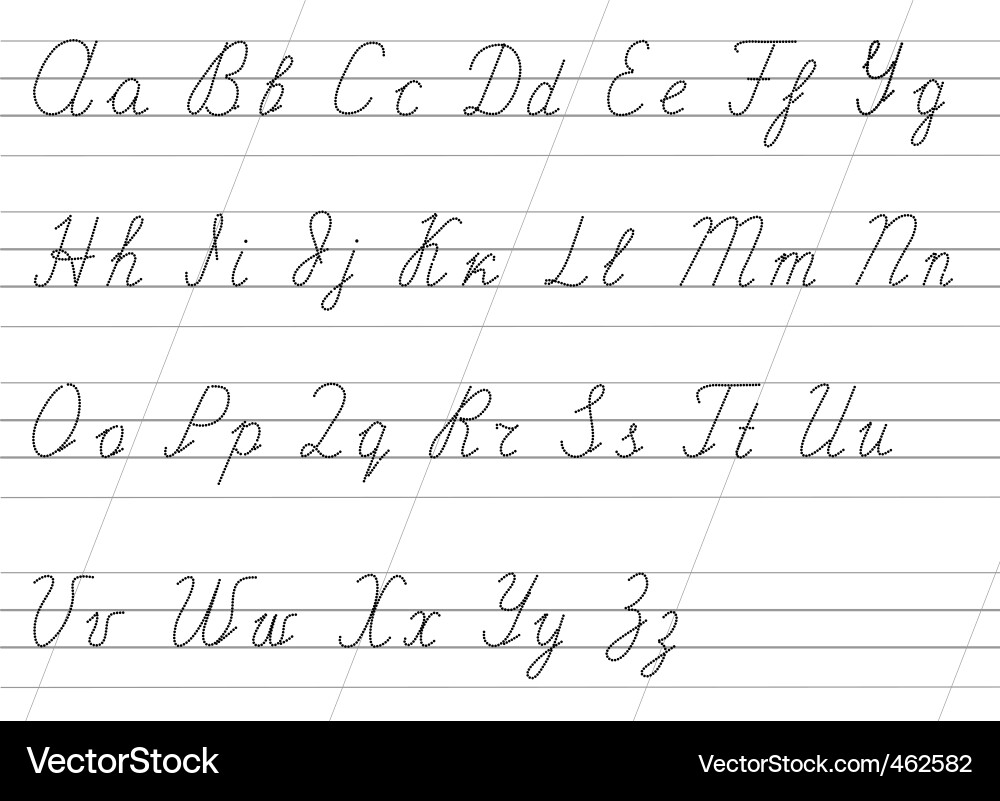 Aa Bb Cc Dd Ee Ff Gg
Hh Ii Jj Kk Ll Mm Nn
Oo Pp Qq Rr Ss Tt Uu
Vv Ww Xx Yy Zz
VectorStock VectorStock.com/462582